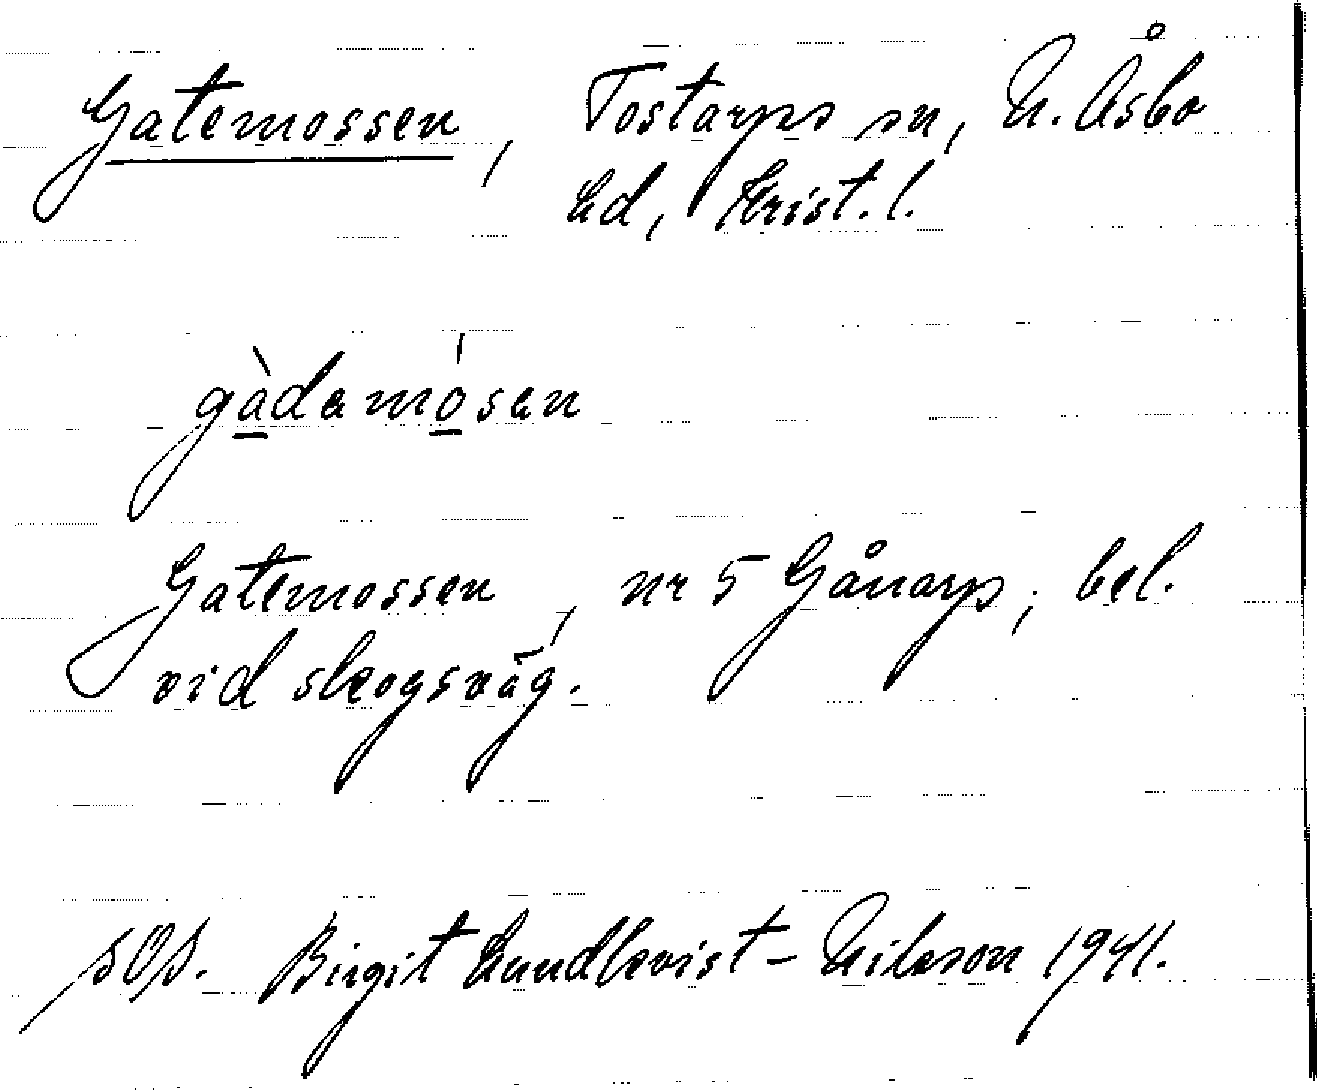 Gatemossen, Tostarps sn, N. Åsbo
hd, Krist. l.
gàdamósen
Gatemossen, nr 5 Gånarp, bel.
vid skogsväg.
Birgit Lundkvist - Nilsson 1941.